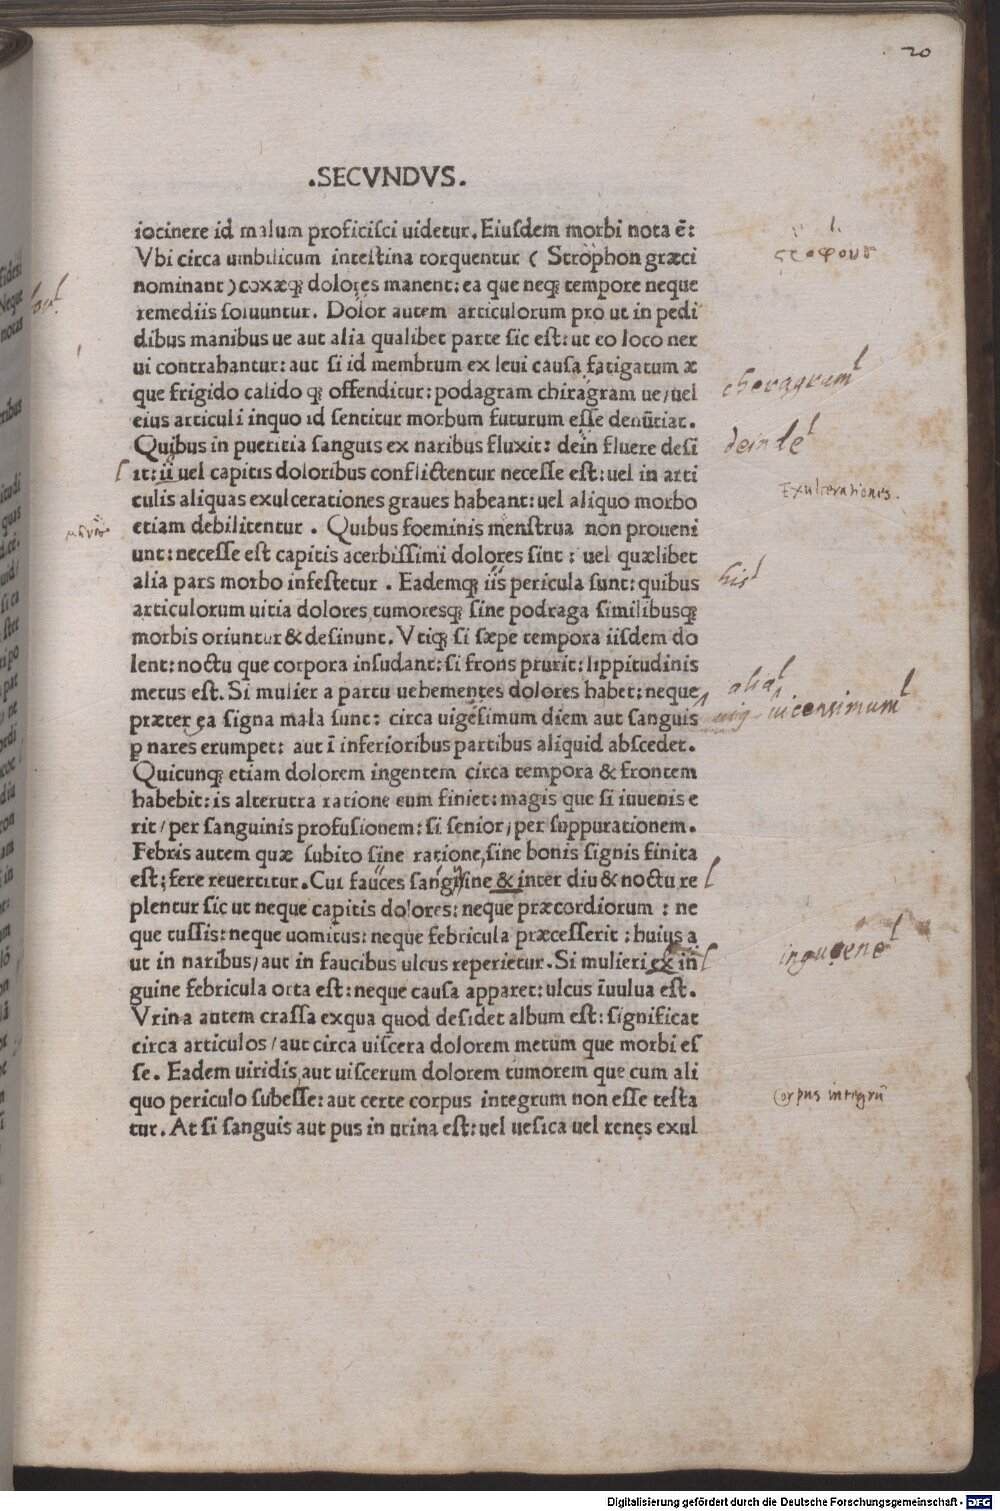 20
.SECVNDVS.
iocinere id malum proficisci uidetur. Eiusdem morbi nota ē:
Vbi circa umbilicum intestina torquentur ( Strophon græci
nominant) coxæq; dolores manent: ea que neq; tempore neque
remediis soluuntur. Dolor autem articulorum pro ut in pedi
dibus manibus ue aut alia qualibet parte sic est: ut eo loco ner
ui contrahantur: aut si id membrum ex leui causa fatigatum æ
que frigido calido q; offenditur: podagram chiragram ue/uel
eius articuli inquo id sentitur morbum futurum esse denūtiat.
Quibus in pueritia sanguis ex naribus fluxit: dein fluere desi
it: ii uel capitis doloribus conflictentur necesse est: uel in arti
culis aliquas exulcerationes graues habeant: uel aliquo morbo
etiam debilitentur . Quibus foeminis menstrua non proueni
unt: necesse est capitis acerbissimi dolores sint : uel quælibet
alia pars morbo infestetur . Eademq; iis pericula sunt: quibus
articulorum uitia dolores tumoresq; sine podraga similibusq;
morbis oriuntur & desinunt. Vtiq; si sæpe tempora iisdem do
lent: noctu que corpora insudant: si frons prurit: lippitudinis
metus est. Si mulier a partu uehementes dolores habet: neque
præter ea signa mala sunt: circa uigesimum diem aut sanguis
ꝑ nares erumpet: aut ī inferioribus partibus aliquid abscedet.
Quicunq; etiam dolorem ingentem circa tempora & frontem
habebit: is alterutra ratione eum finiet: magis que si iuuenis e
rit/per sanguinis profusionem: si senior/per suppurationem.
Febris autem quæ subito sine ratione, sine bonis signis finita
est; fere reuertitur. Cui fauces sangisine & inter diu & noctu re
plentur sic ut neque capitis dolores: neque præcordiorum : ne
que tussis: neque uomitus: neque febricula præcesserit : huius a
ut in naribus/aut in faucibus ulcus reperietur. Si mulieri ex in
guine febricula orta est: neque causa apparet: ulcus īuulua est.
Vrina autem crassa exqua quod desidet album est: significat
circa articulos/aut circa uiscera dolorem metum que morbi es
se. Eadem uiridis aut uiscerum dolorem tumorem que cum ali
quo periculo subesse: aut certe corpus integrum non esse testa
tur. At si sanguis aut pus in urina est: uel uesica uel renes exul
ϛροφουσ
cheragram
deinde
Exulcerationes.
his
alia
uicensimum
inguene
Corpus integrū
Digitalisierung gefördert durch die Deutsche Forschungsgemeinschaft - DFG